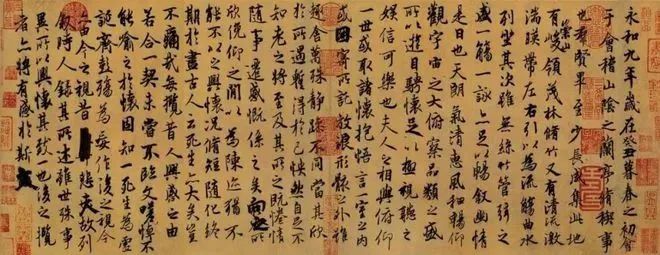 永和九年歲在癸丑暮春之初會
于會稽山陰之蘭亭脩稧事
也羣賢畢至少長咸集此地
有崇山峻領茂林脩竹又有清流激
湍暎帶左右引以為流觴曲水
列坐其次雖無絲竹管弦之
盛一觴一詠亦足以暢敘幽情
是日也天朗氣清惠風和暢仰
觀宇宙之大俯察品類之盛
所以遊目騁懷足以極視聽之
娛信可樂也夫人之相與俯仰
一世或取諸懷抱悟言一室之內
或因寄所託放浪形骸之外雖
趣舍萬殊靜躁不同當其欣
於所遇蹔得於己怏然自足不
知老之將至及其所之既惓情
隨事遷感慨係之矣向之所
欣俛仰之閒以為陳跡猶不
能不以之興懷況脩短隨化終
期於盡古人云死生亦大矣豈
不痛哉每攬昔人興感之由
若合一契未嘗不臨文嗟悼不
能喻之於懷固知一死生為虛
誕齊彭殤為妄作後之視今
亦由今之視昔悲夫故列
敘時人錄其所述雖世殊事
異所以興懷其致一也後之攬
者亦將有感於斯文